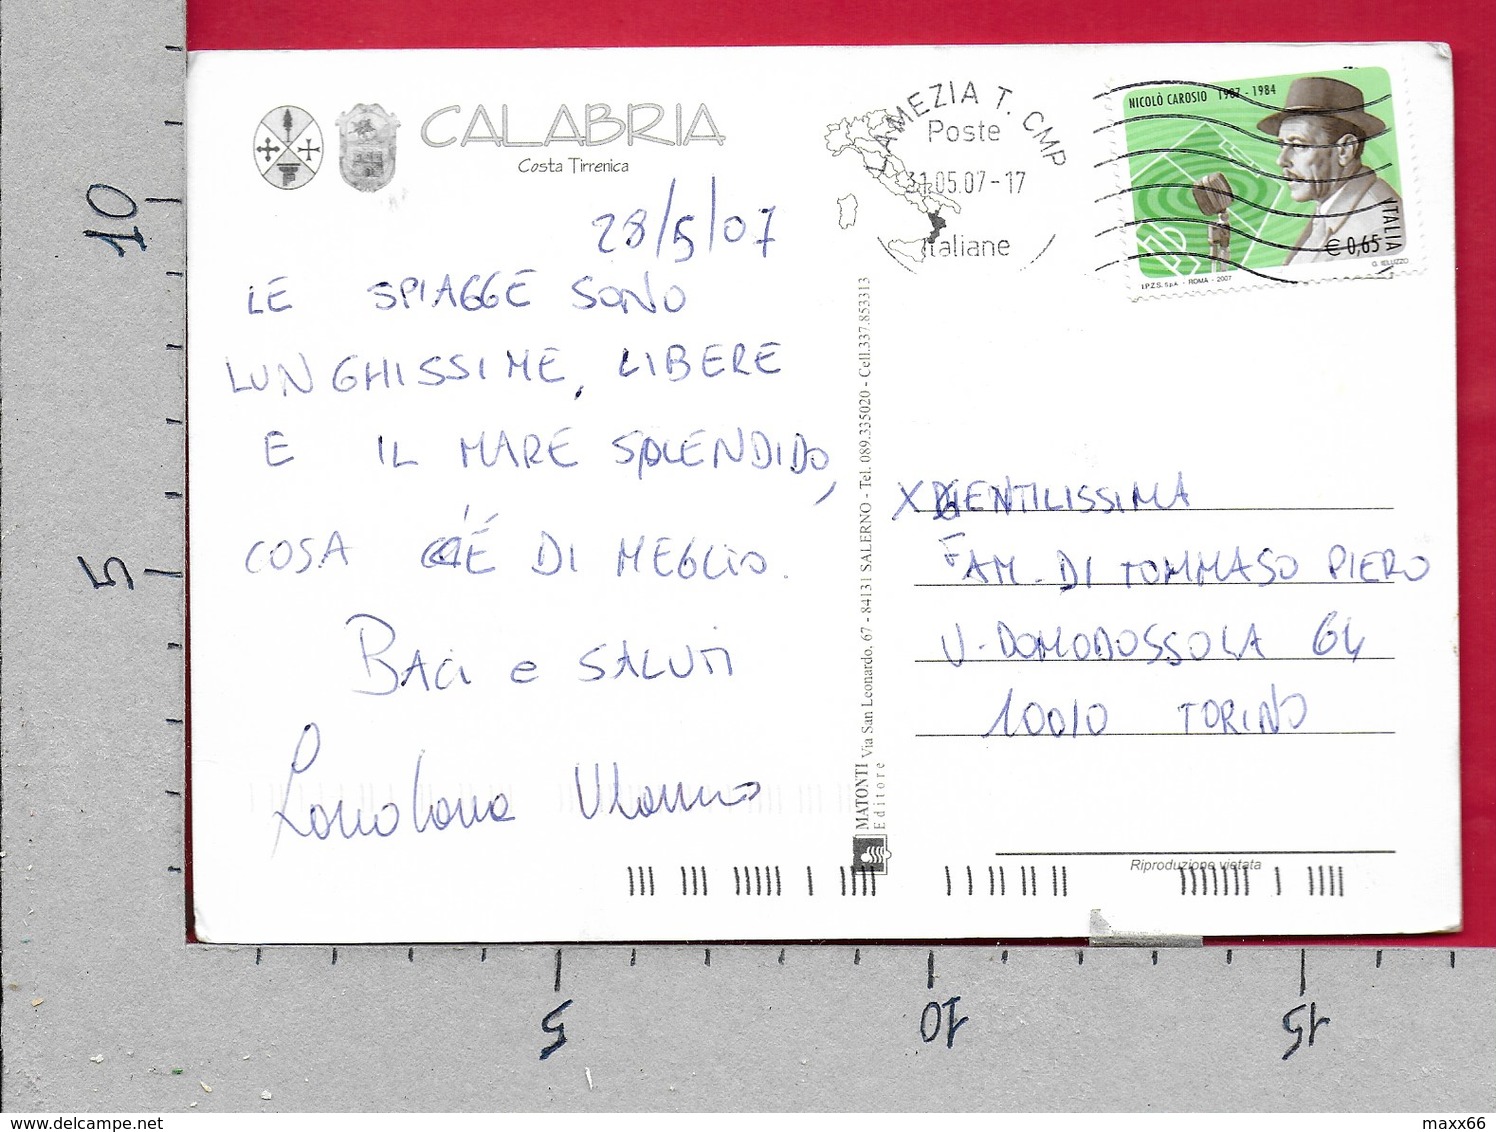 CALABRIA
Costa Tirrenica
28/5/07
LE SPIAGGE SONO
LUNGHISSIME, LIBERE
E IL MARE SPLENDIDO,
COSA C'É DI MEGLIO.
BACI e SALUTI
LAMEZIA T. CMP
Poste
31.05.07-17
Italiane
NICOLÒ CAROSIO 1907 - 1984
ITALIA
€ 0,65
G. IELUZZO
I.P.Z.S. S.p.A. - ROMA - 2007
MATONTI Via San Leonardo, 67 - 84131 SALERNO - Tel. 089.335020 - Cell.337.853313
Editore
X GENTILISSIMA
FAM. DI TOMMASO PIERO
V. DOMODOSSOLA 64
10010 TORINO
Riproduzione vietata
10
5
5
10
15
www.delcampe.net
maxx66